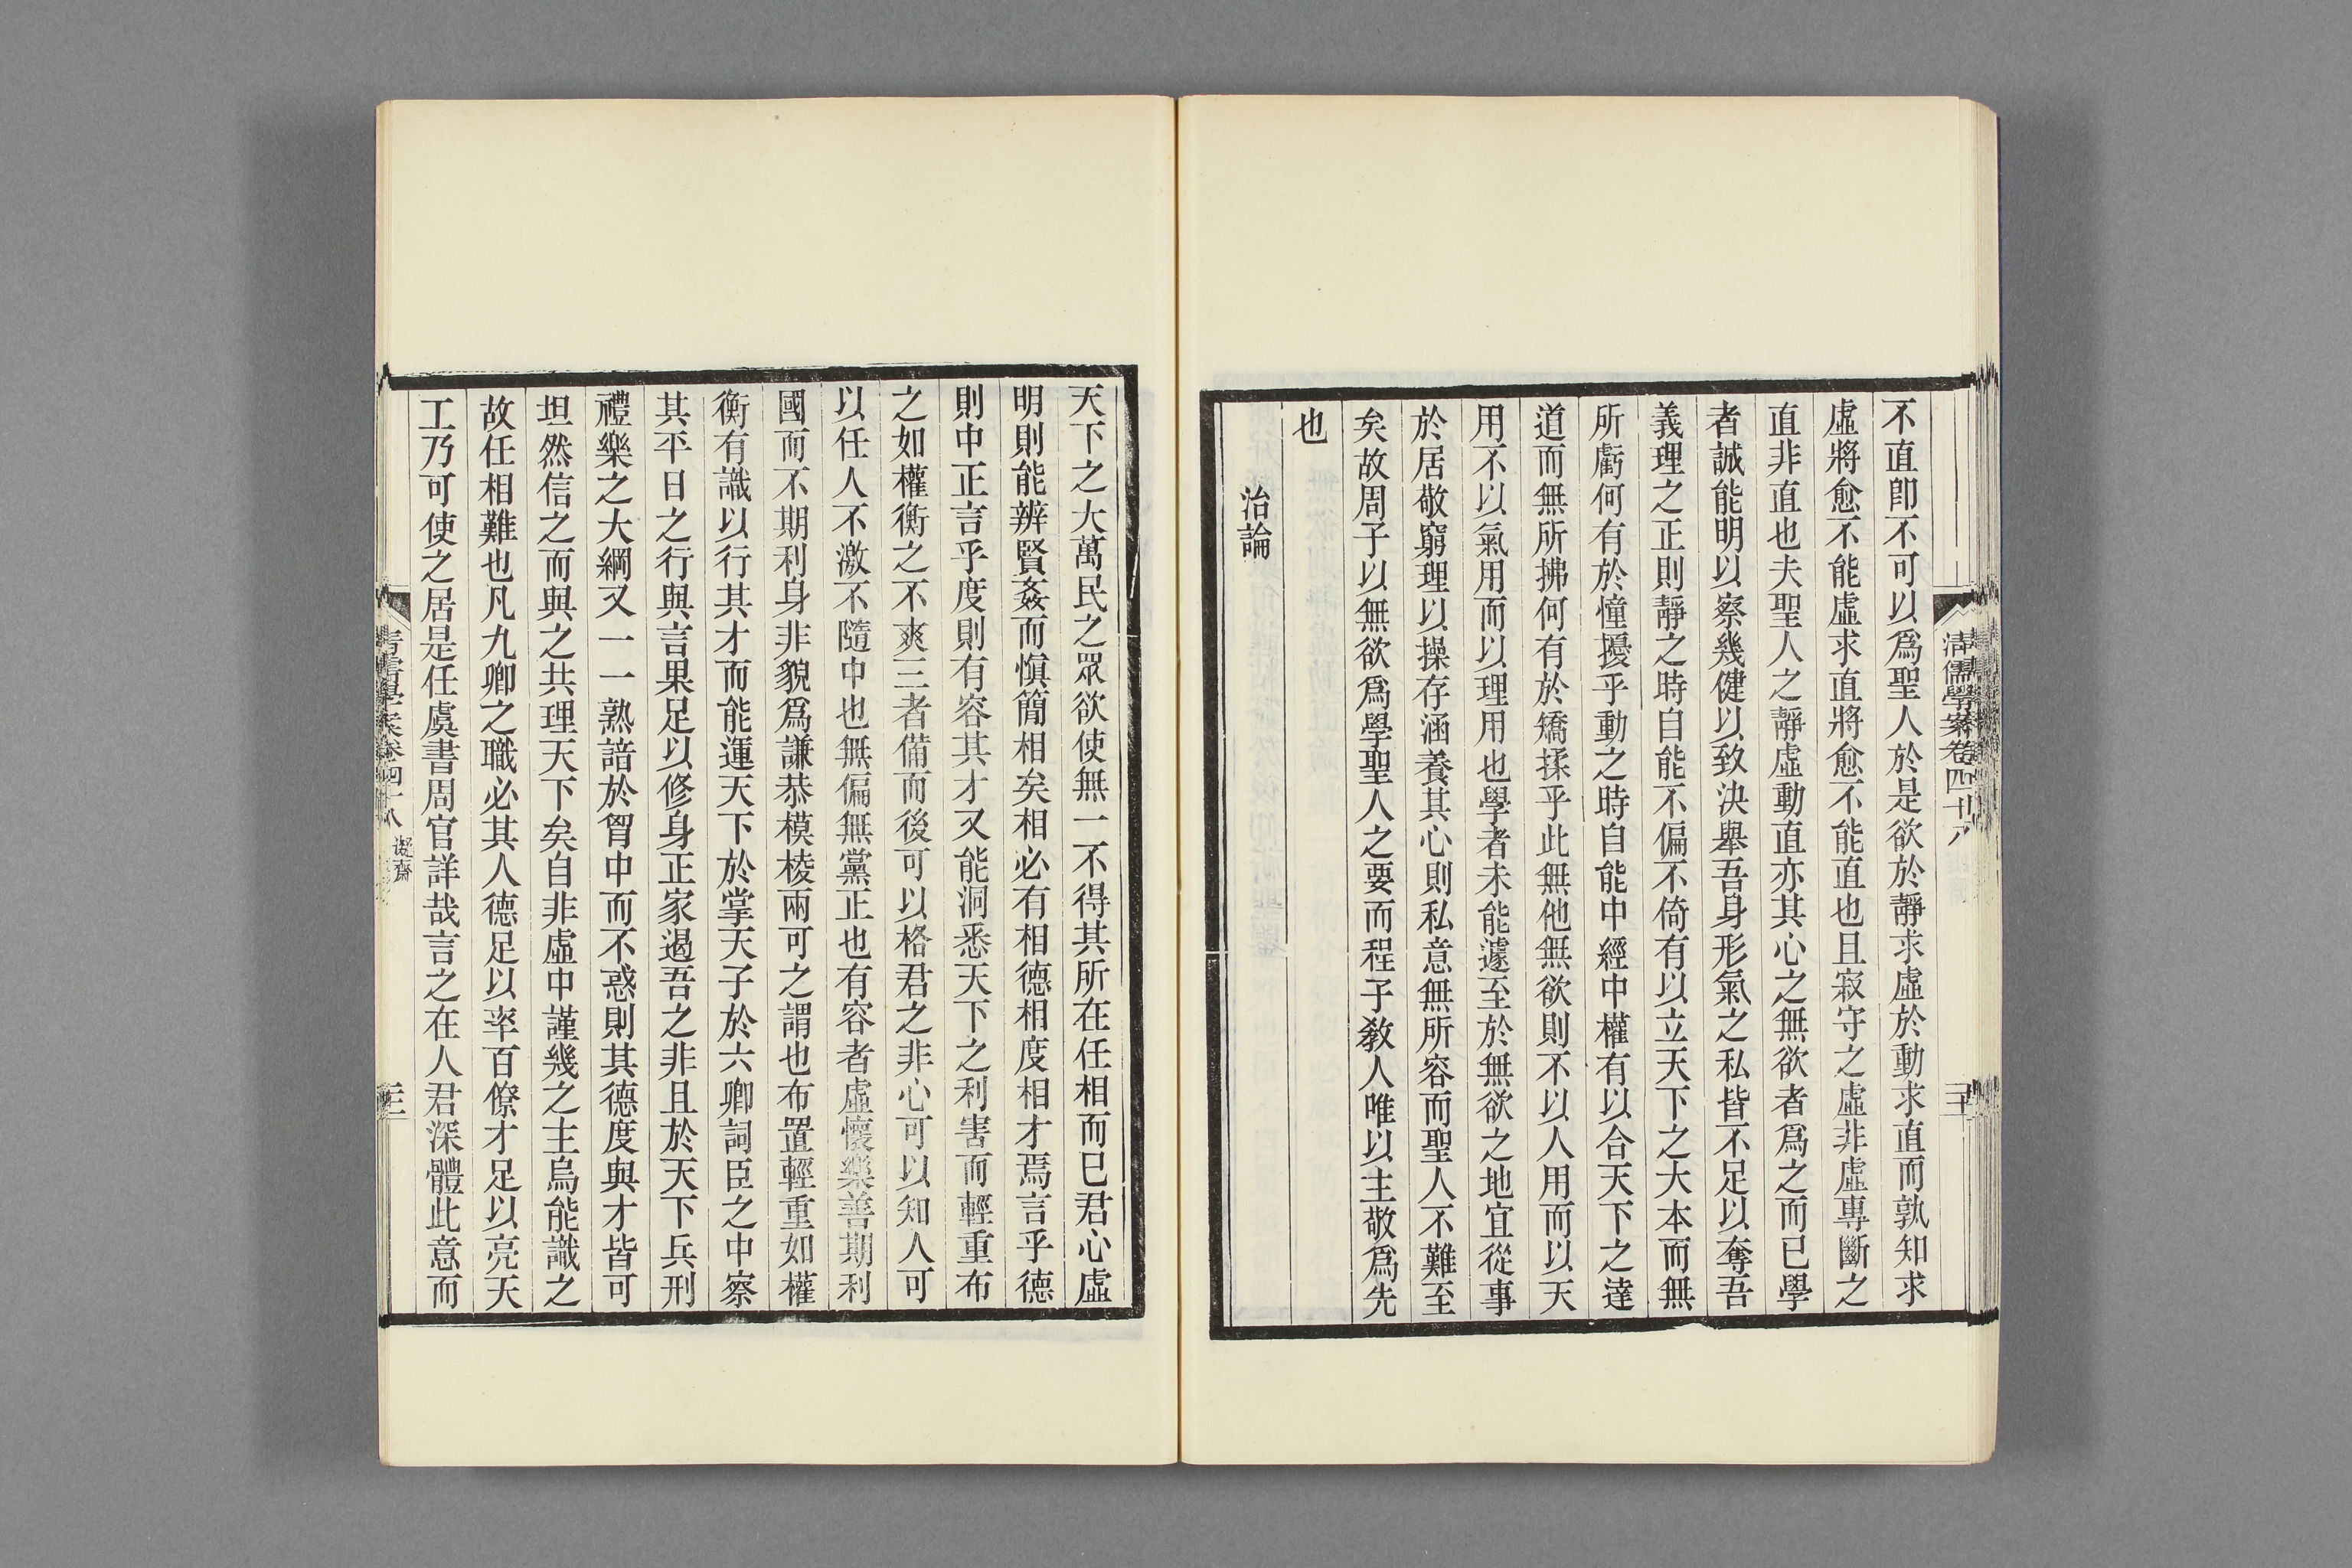 清儒學案卷四十八
不直卽不可以爲聖人於是欲於靜求虛於動求直而孰知求
虛將愈不能虛求直將愈不能直也且寂守之虛非虛專斷之
直非直也夫聖人之靜虛動直亦其心之無欲者爲之而已學
者誠能明以察幾健以致決舉吾身形氣之私皆不足以奪吾
義理之正則靜之時自能不偏不倚有以立天下之大本而無
所虧何有於憧擾乎動之時自能中經中權有以合天下之達
道而無所拂何有於矯揉乎此無他無欲則不以人用而以天
用不以氣用而以理用也學者未能遽至於無欲之地宜從事
於居敬窮理以操存涵養其心則私意無所容而聖人不難至
矣故周子以無欲爲學聖人之要而程子敎人唯以主敬爲先
也
治論
天下之大萬民之眾欲使無一不得其所在任相而已君心虛
明則能辨賢姦而愼簡相矣相必有相德相度相才焉言乎德
則中正言乎度則有容其才又能洞悉天下之利害而輕重布
之如權衡之不爽三者備而後可以格君之非心可以知人可
以任人不激不隨中也無偏無黨正也有容者虛懷樂善期利
國而不期利身非貌爲謙恭模棱兩可之謂也布置輕重如權
衡有識以行其才而能運天下於掌天子於六卿詞臣之中察
其平日之行與言果足以修身正家遏吾之非且於天下兵刑
禮樂之大綱又一一熟諳於胷中而不惑則其德度與才皆可
坦然信之而與之共理天下矣自非虛中謹幾之主烏能識之
故任相難也凡九卿之職必其人德足以率百僚才足以亮天
工乃可使之居是任虞書周官詳哉言之在人君深體此意而
清儒學案卷四十八 凝齋